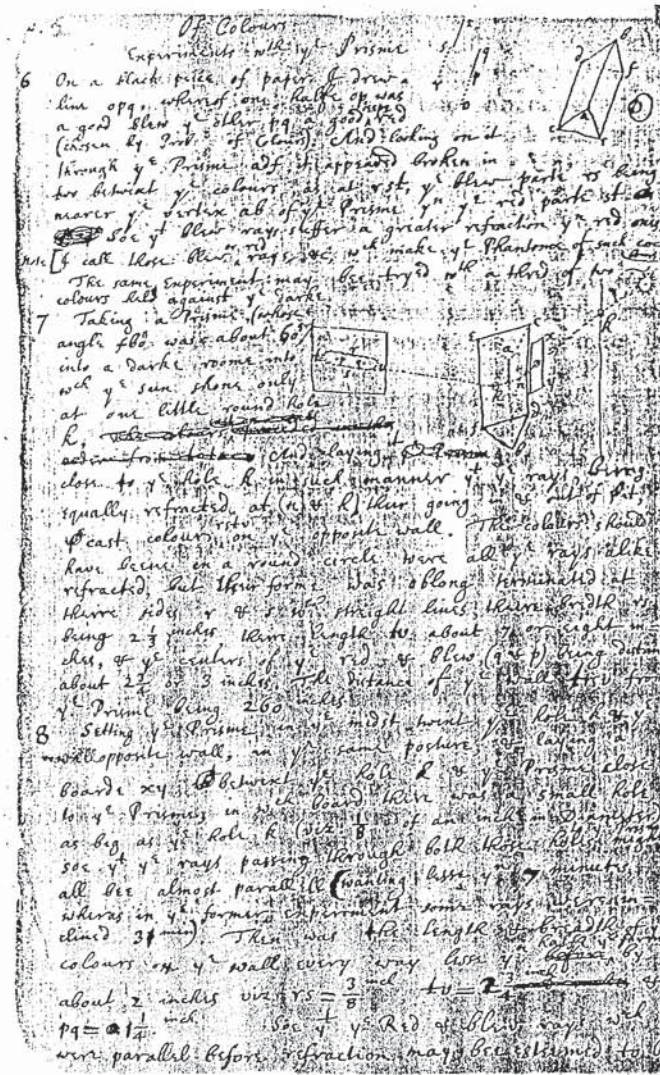 Of Colours
Experiments wth ye Prisme
6 On a black peice of paper I drew a
line opq, whereof one halfe op was
a good blew ye other pq a good deepe red
(chosen by Prob. of Colours). And looking on it
through ye Prisme adf, it appeared broken in
two betwixt ye colours as at rst, ye blew parte rs being
nearer ye vertex ab of ye Prisme yn ye red parte st
Soe yt blew rays suffer a greater refraction yn red ones
note [I call those blew, or red rays &c, wch make ye Phantome of such
The same Experiment may bee tryed wth a thred of two
colours held against ye darke
7 Taking a Prisme, (whose
angle fbd was about 60)
into a darke roome into
wch ye sun shone only
at one little round hole
k, And laying it
close to ye hole k in such manner yt ye rays, being
equally refracted at (n & h) their going in & out of it,
cast colours rstv on ye opposite wall. The colours should
have beene in a round circle were all ye rays alike
refracted, but their forme was oblong terminated at
theire sides r & s wth streight lines theire bredth rs
being 2 1/3 inches there length tv about 7 or eight in
ches, & ye centers of ye red & blew (q & p) being distant
about 2 3/4 or 3 inches. The distance of ye wall trv from
ye Prisme being 260 inches
8 Setting ye Prisme, in ye midst twixt ye hole k & ye
opposite wall, in ye same posture, & laying a
boarde xy betwixt ye hole k & ye Prisme close
to ye Prisme, in wch board there was a small hole
as big as ye hole k (viz: 1/8 of an inch in Diameter)
soe yt ye rays passing through both those holes might
all bee almost parallell (wanting lesse yn 7 minutes,
wheras in ye former experiment some rays were in-
clined 31 min). Then was the length & breadth of ye
colours on ye wall every way lesse yn halfe ye former by
about 2 inches viz rs = 3/8 inch tv = 2 3/4 inch
pq = 1 1/4 inch. Soe yt ye Red & blew rays wch
were parallel before refraction may bee esteemed to